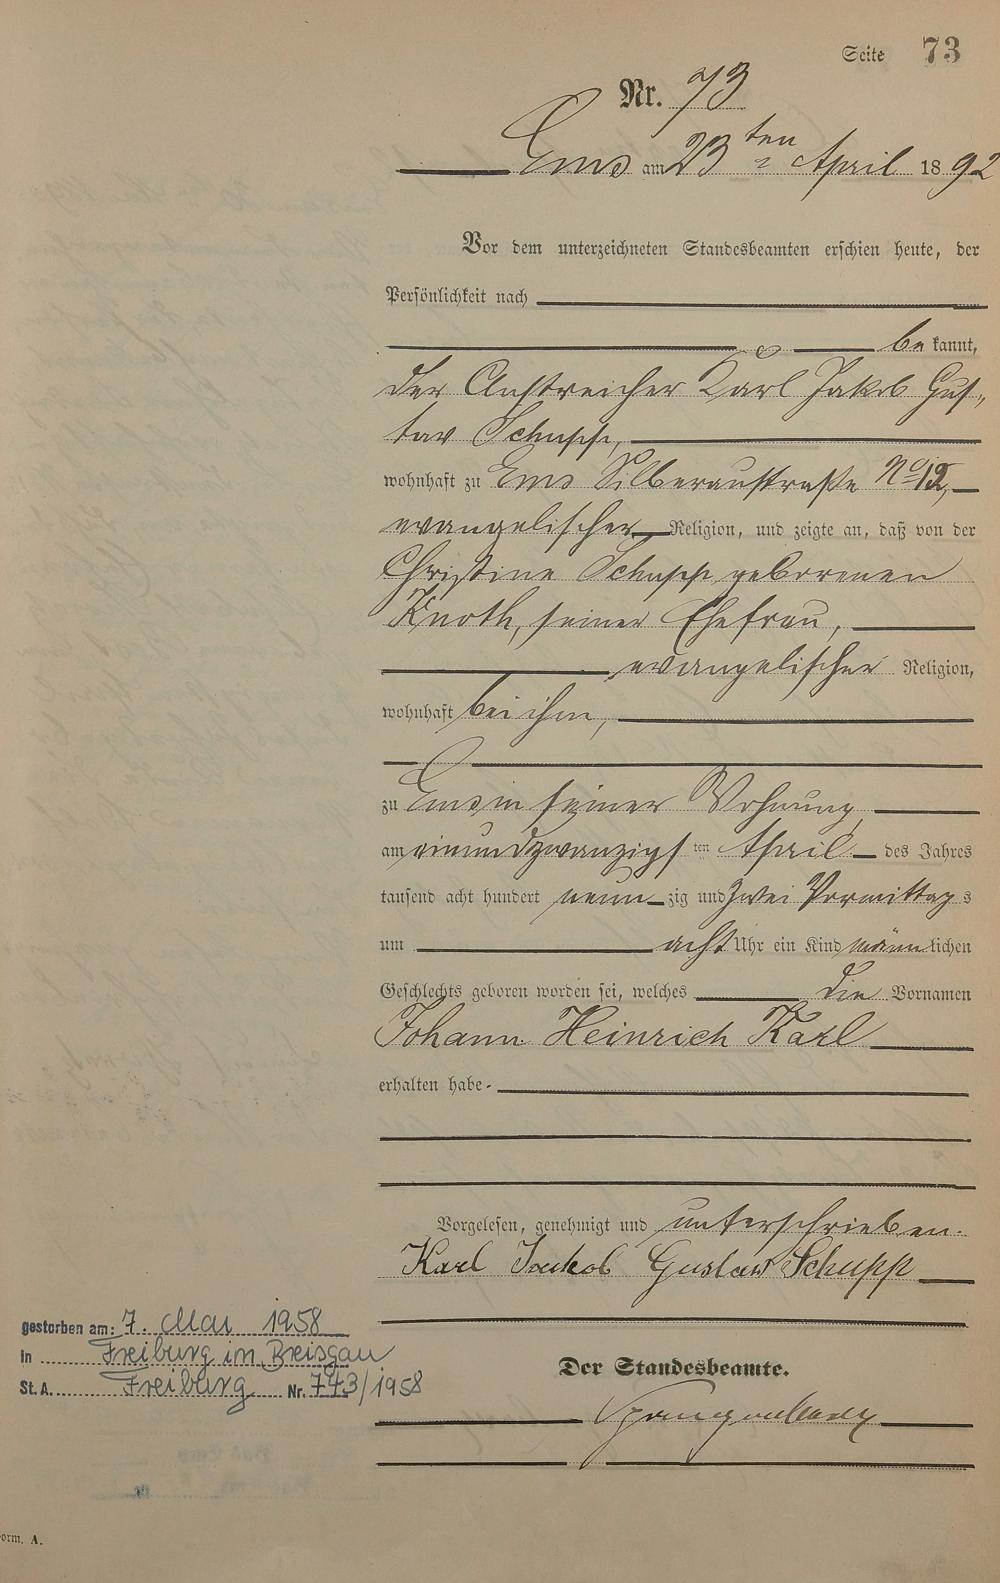 Seite 73
Nr. 73
Ems am 23ten April 1892
Vor dem unterzeichneten Standesbeamten erschien heute, der
Persönlichkeit nach
bekannt,
der Anstreicher Karl Jakob Gus-
tav Schupp,
wohnhaft zu Ems Silberaustraße No 12,
evangelischer Religion, und zeigte an, daß von der
Christine Schupp geborenen
Knoth, seiner Ehefrau,
evangelischer Religion,
wohnhaft bei ihm,
zu Ems in seiner Wohnung
am einundzwanzigsten April des Jahres
tausend acht hundert neunzig und zwei Vormittags
um acht Uhr ein Kind männlichen
Geschlechts geboren worden sei, welches die Vornamen
Johann Heinrich Karl
erhalten habe.
Vorgelesen, genehmigt und unterschrieben.
Karl Jakob Gustav Schupp
Der Standesbeamte.
gestorben am: 7. Mai 1958
in Freiburg im Breisgau
St. A. Freiburg Nr. 743/1958
orm. A.